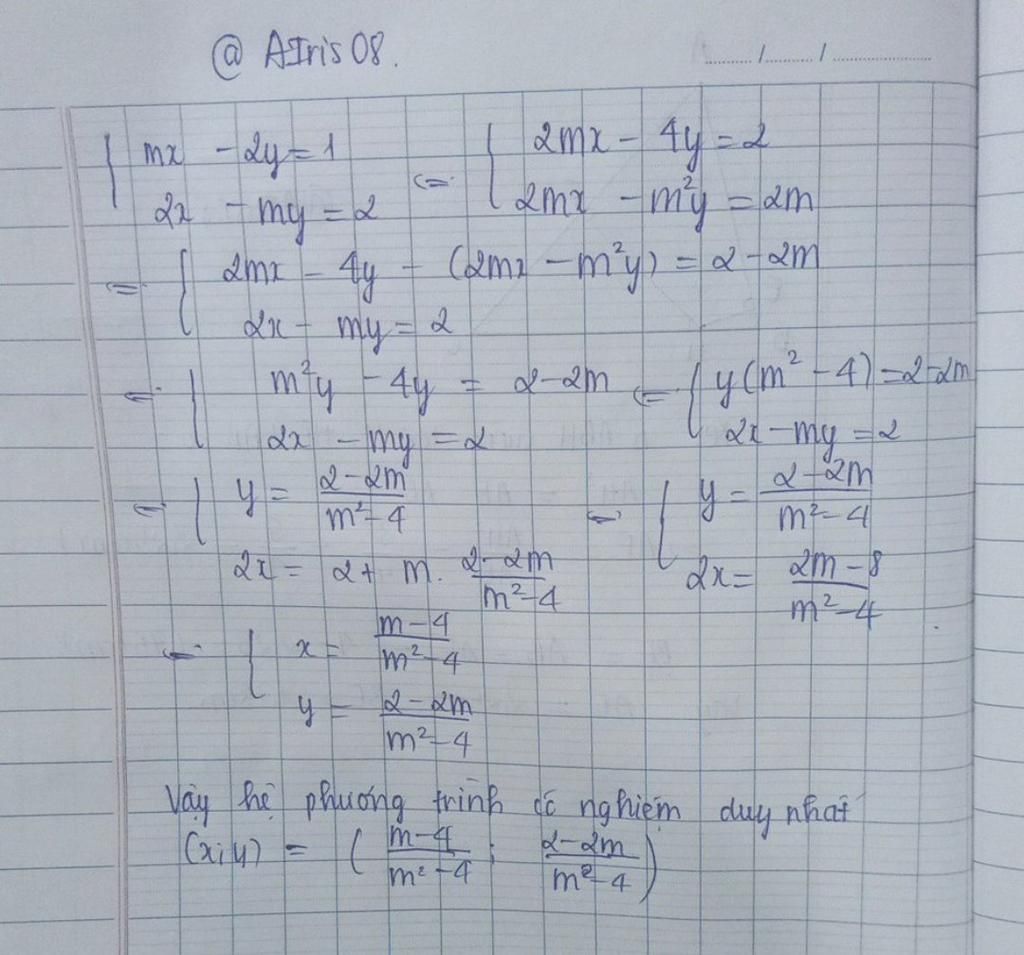 @ AIris08.
......./......./.............
{ mx - 2y = 1 <=> { 2mx - 4y = 2
2x - my = 2 2mx - m²y = 2m
<=> { 2mx - 4y - (2mx - m²y) = 2 - 2m
2x - my = 2
<=> { m²y - 4y = 2 - 2m <=> { y(m² - 4) = 2 - 2m
2x - my = 2 2x - my = 2
<=> { y = (2 - 2m)/(m² - 4) <=> { y = (2 - 2m)/(m² - 4)
2x = 2 + m. (2 - 2m)/(m² - 4) 2x = (2m - 8)/(m² - 4)
<=> { x = (m - 4)/(m² - 4)
y = (2 - 2m)/(m² - 4)
Vậy hệ phương trình có nghiệm duy nhất
(x;y) = ( (m - 4)/(m² - 4) ; (2 - 2m)/(m² - 4) )